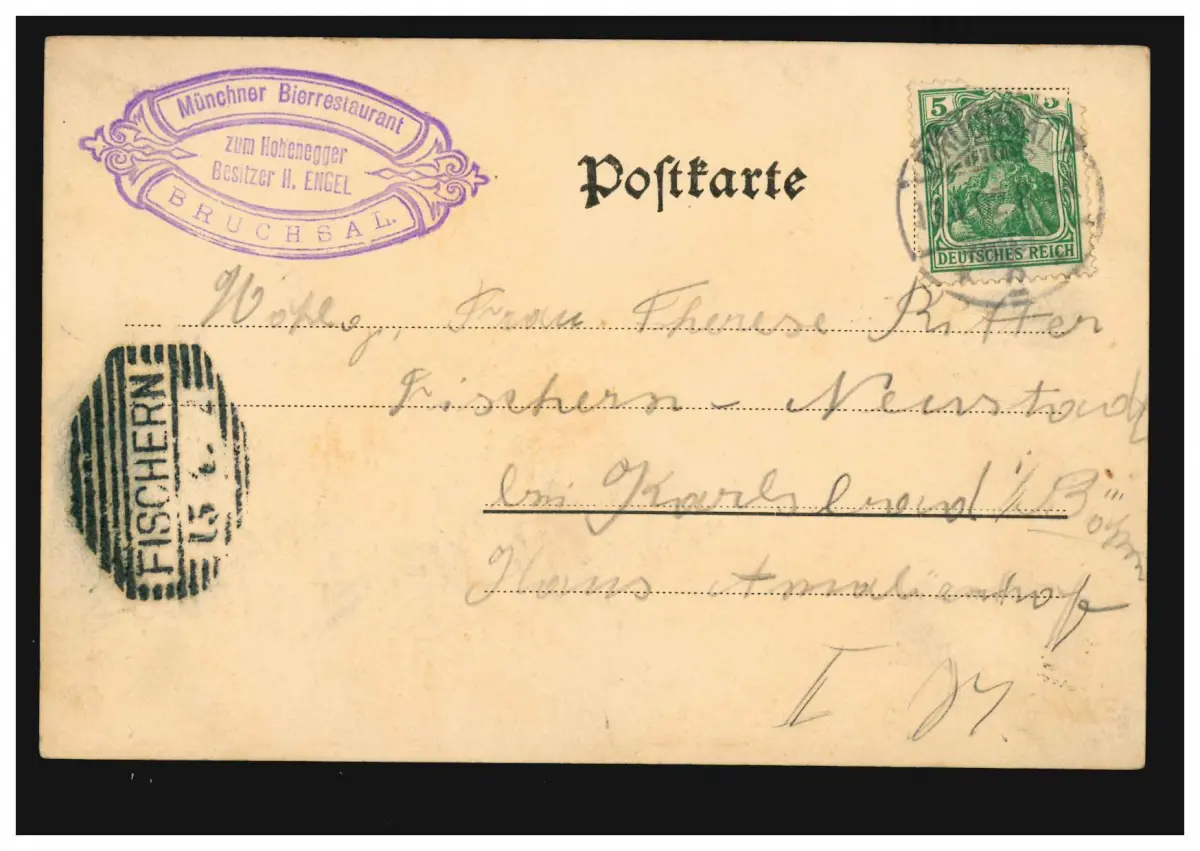 Münchner Bierrestaurant
zum Hohenegger
Besitzer H. ENGEL
BRUCHSAL.
Postkarte
5 5
BRUCHSAL
DEUTSCHES REICH
Frau Therese Ritter
Fischern - Neustadt
bei Karlsbad i/ Böhm
Haus Amalienhof
I
FISCHERN
15